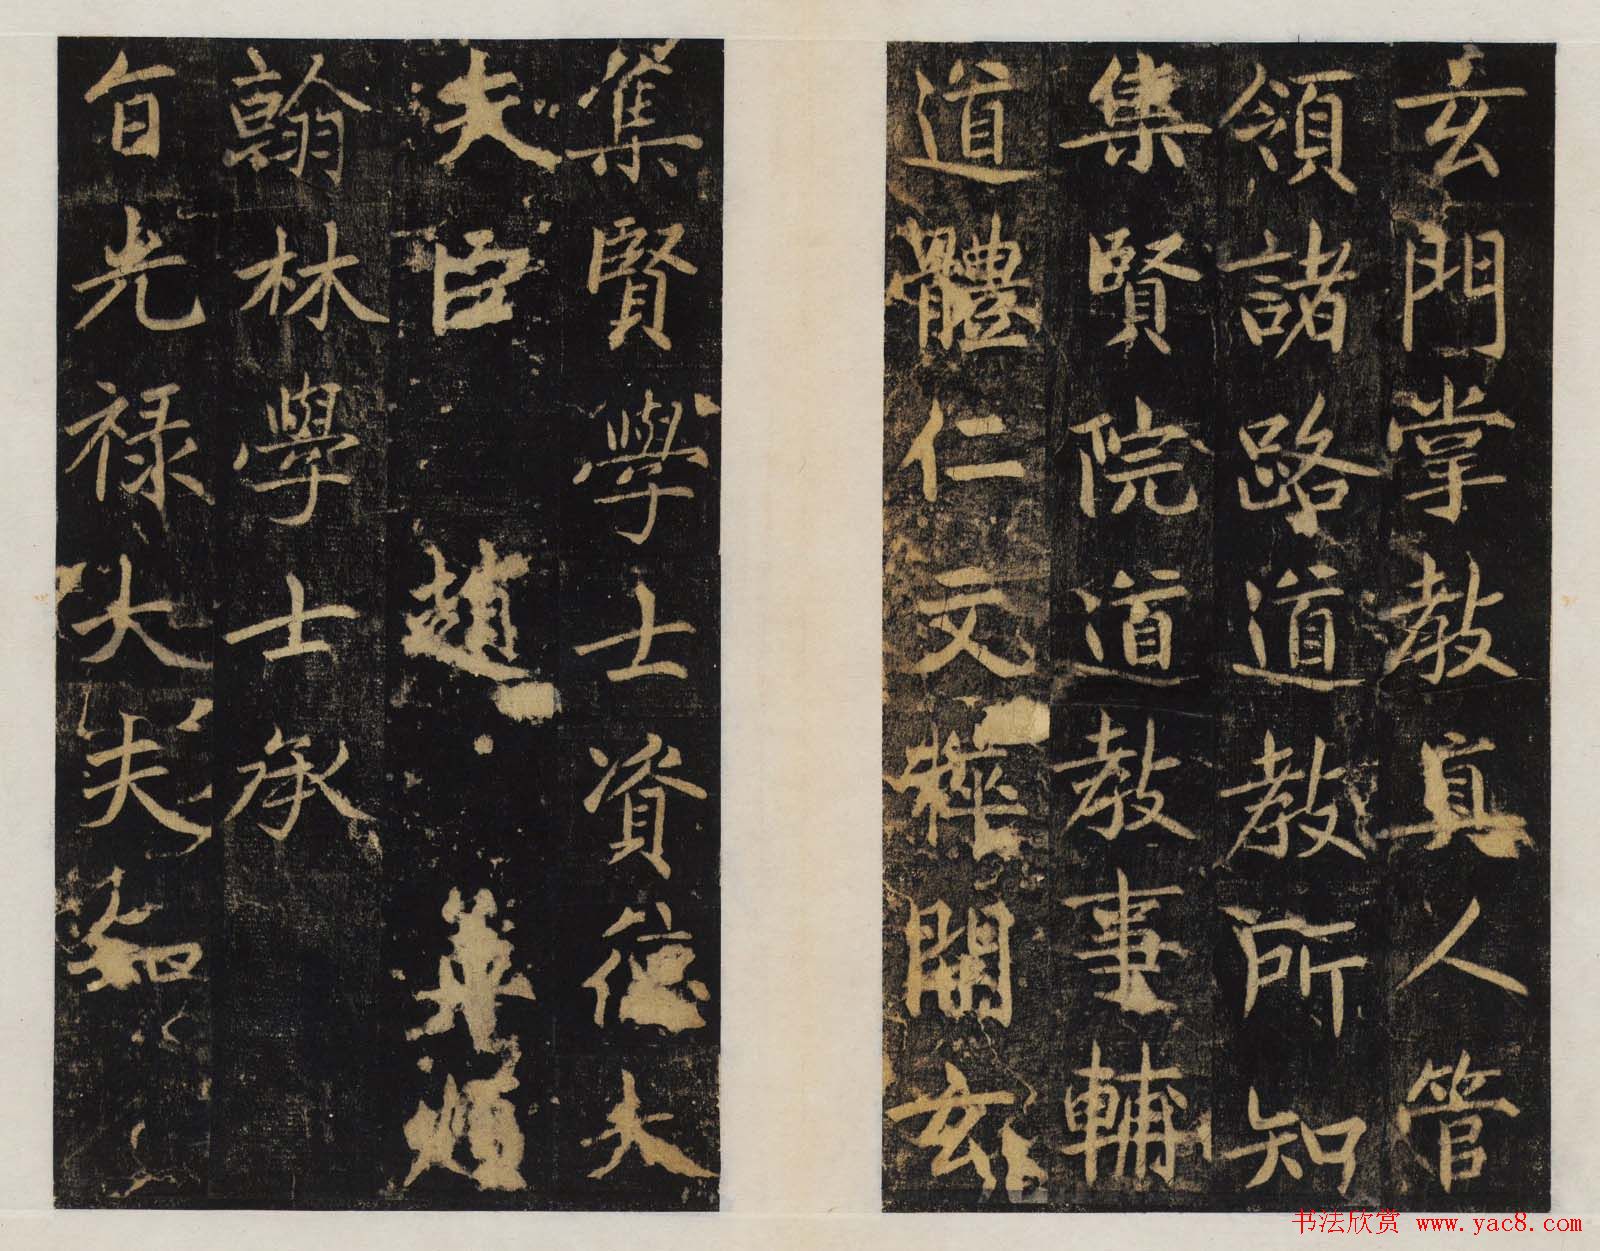 玄門掌教真人管
領諸路道教所知
集賢院道教事輔
道體仁文粹開玄
集賢學士資德大
夫臣 趙
翰林學士承
旨光祿大夫知
书法欣赏 www.yac8.com